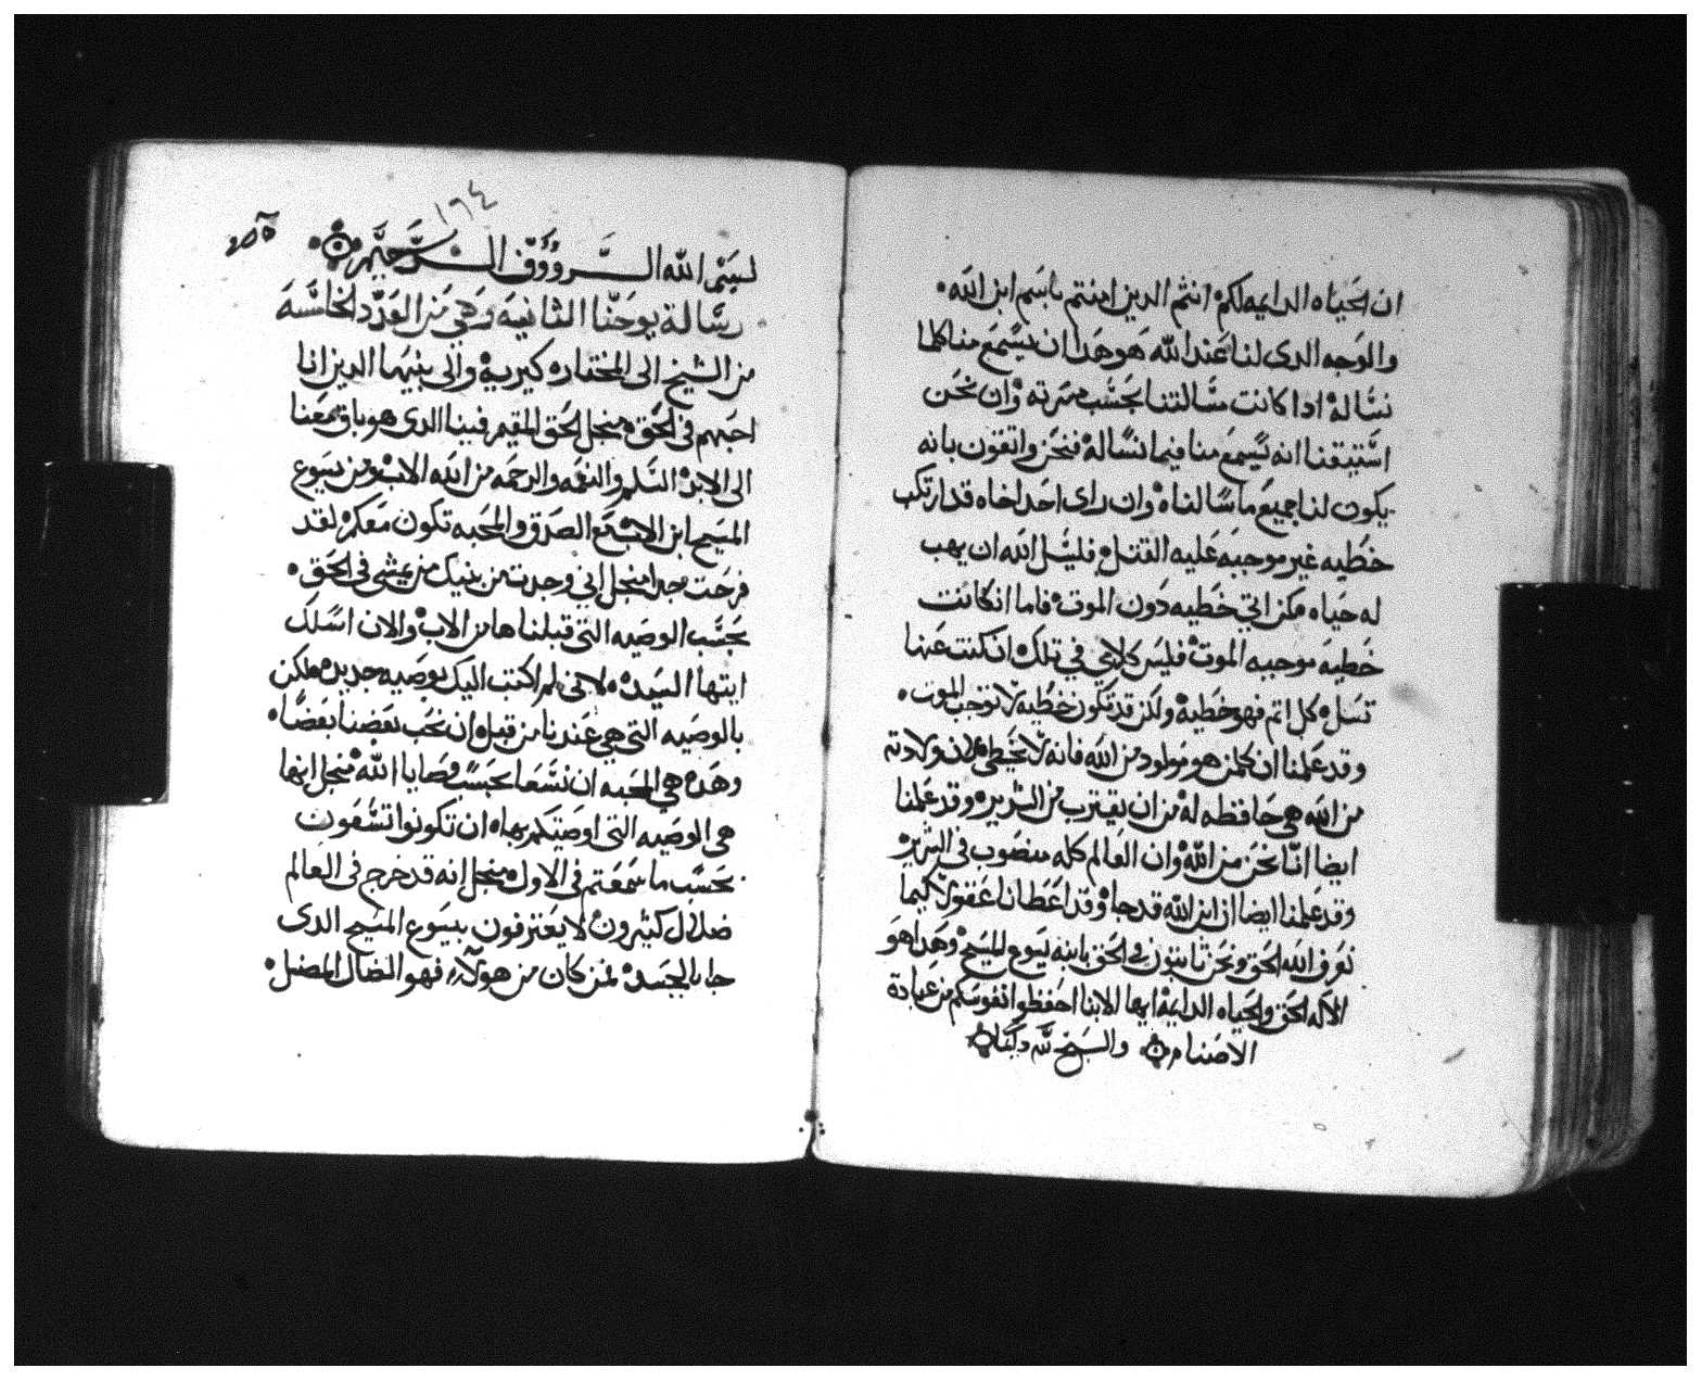 ان الحياه الدايمه لكم انتم الدين امنتم باسم ابن الله
والوجه الدى لنا عند الله هو هدا ان يسمع منا كلما
نساله ادا كانت مسالتنا بحسب مسرته وان نحن
استيقنا انه يسمع منا فيما نساله فنحن واتقون بانه
يكون لنا جميع ما سالناه وان راى احد اخاه قد ارتكب
خطيه غير موجبه عليه القتل فليسل الله ان يهب
له حياه لمن اتي خطيه دون الموت فاما ان كانت
خطيه موجبه الموت فليس كلامي في تلك ان كنت عنها
تسل كل اتم فهو خطيه ولكن قد تكون خطيه لا توجب الموت
وقد علمنا ان كلمن هو مولود من الله فانه لا يخطى لان ولادته
من الله هي حافظه له من ان يقترب من الشرير وقد علمنا
ايضا انا نحن من الله وان العالم كله منصوب فى الشرير
وقد علمنا ايضا ان ابن الله قد جا وقد اعطانا عقولا كيما
نعرف الله الحق ونحن تابتون فى الحق بابنه يسوع المسيح وهدا هو
الاله الحق والحياه الدايمه ايها الابنا احفظوا نفوسكم من عبادة
الاصنام والسبح لله دايما
١٦٤
بسم الله الرووف الرحيم
رسالة يوحنا الثانيه وهي من العدد الخامسه
من الشيخ الى المختاره كيريه والى بنيها الدين انا
احبهم فى الحق منجل الحق المقيم فينا الدى هو باق معنا
الى الابد السلم والنعمه والرحمه من الله الاب ومن يسوع
المسيح ابن الاب مع الصدق والمحبه تكون معكم لقد
فرحت جدا منجل اني وجدت من بنيك من يمشى فى الحق
بحسب الوصيه التى قبلناها من الاب والان اسلك
ايتها السيده لا انى لم اكتب اليك بوصيه جديده لكن
بالوصيه التى هي عندنا من قبل ان نحب بعضنا بعضا
وهده هي المحبه ان نسعا بحسب وصايا الله منجل انها
هى الوصيه التى اوصيتكم بها ان تكونوا تسعون
بحسب ما سمعتم فى الاول منجل انه قد خرج فى العالم
ضلال كثيرون لا يعترفون بيسوع المسيح الدى
جا بالجسد فمن كان من هولاء فهو الضال المضل